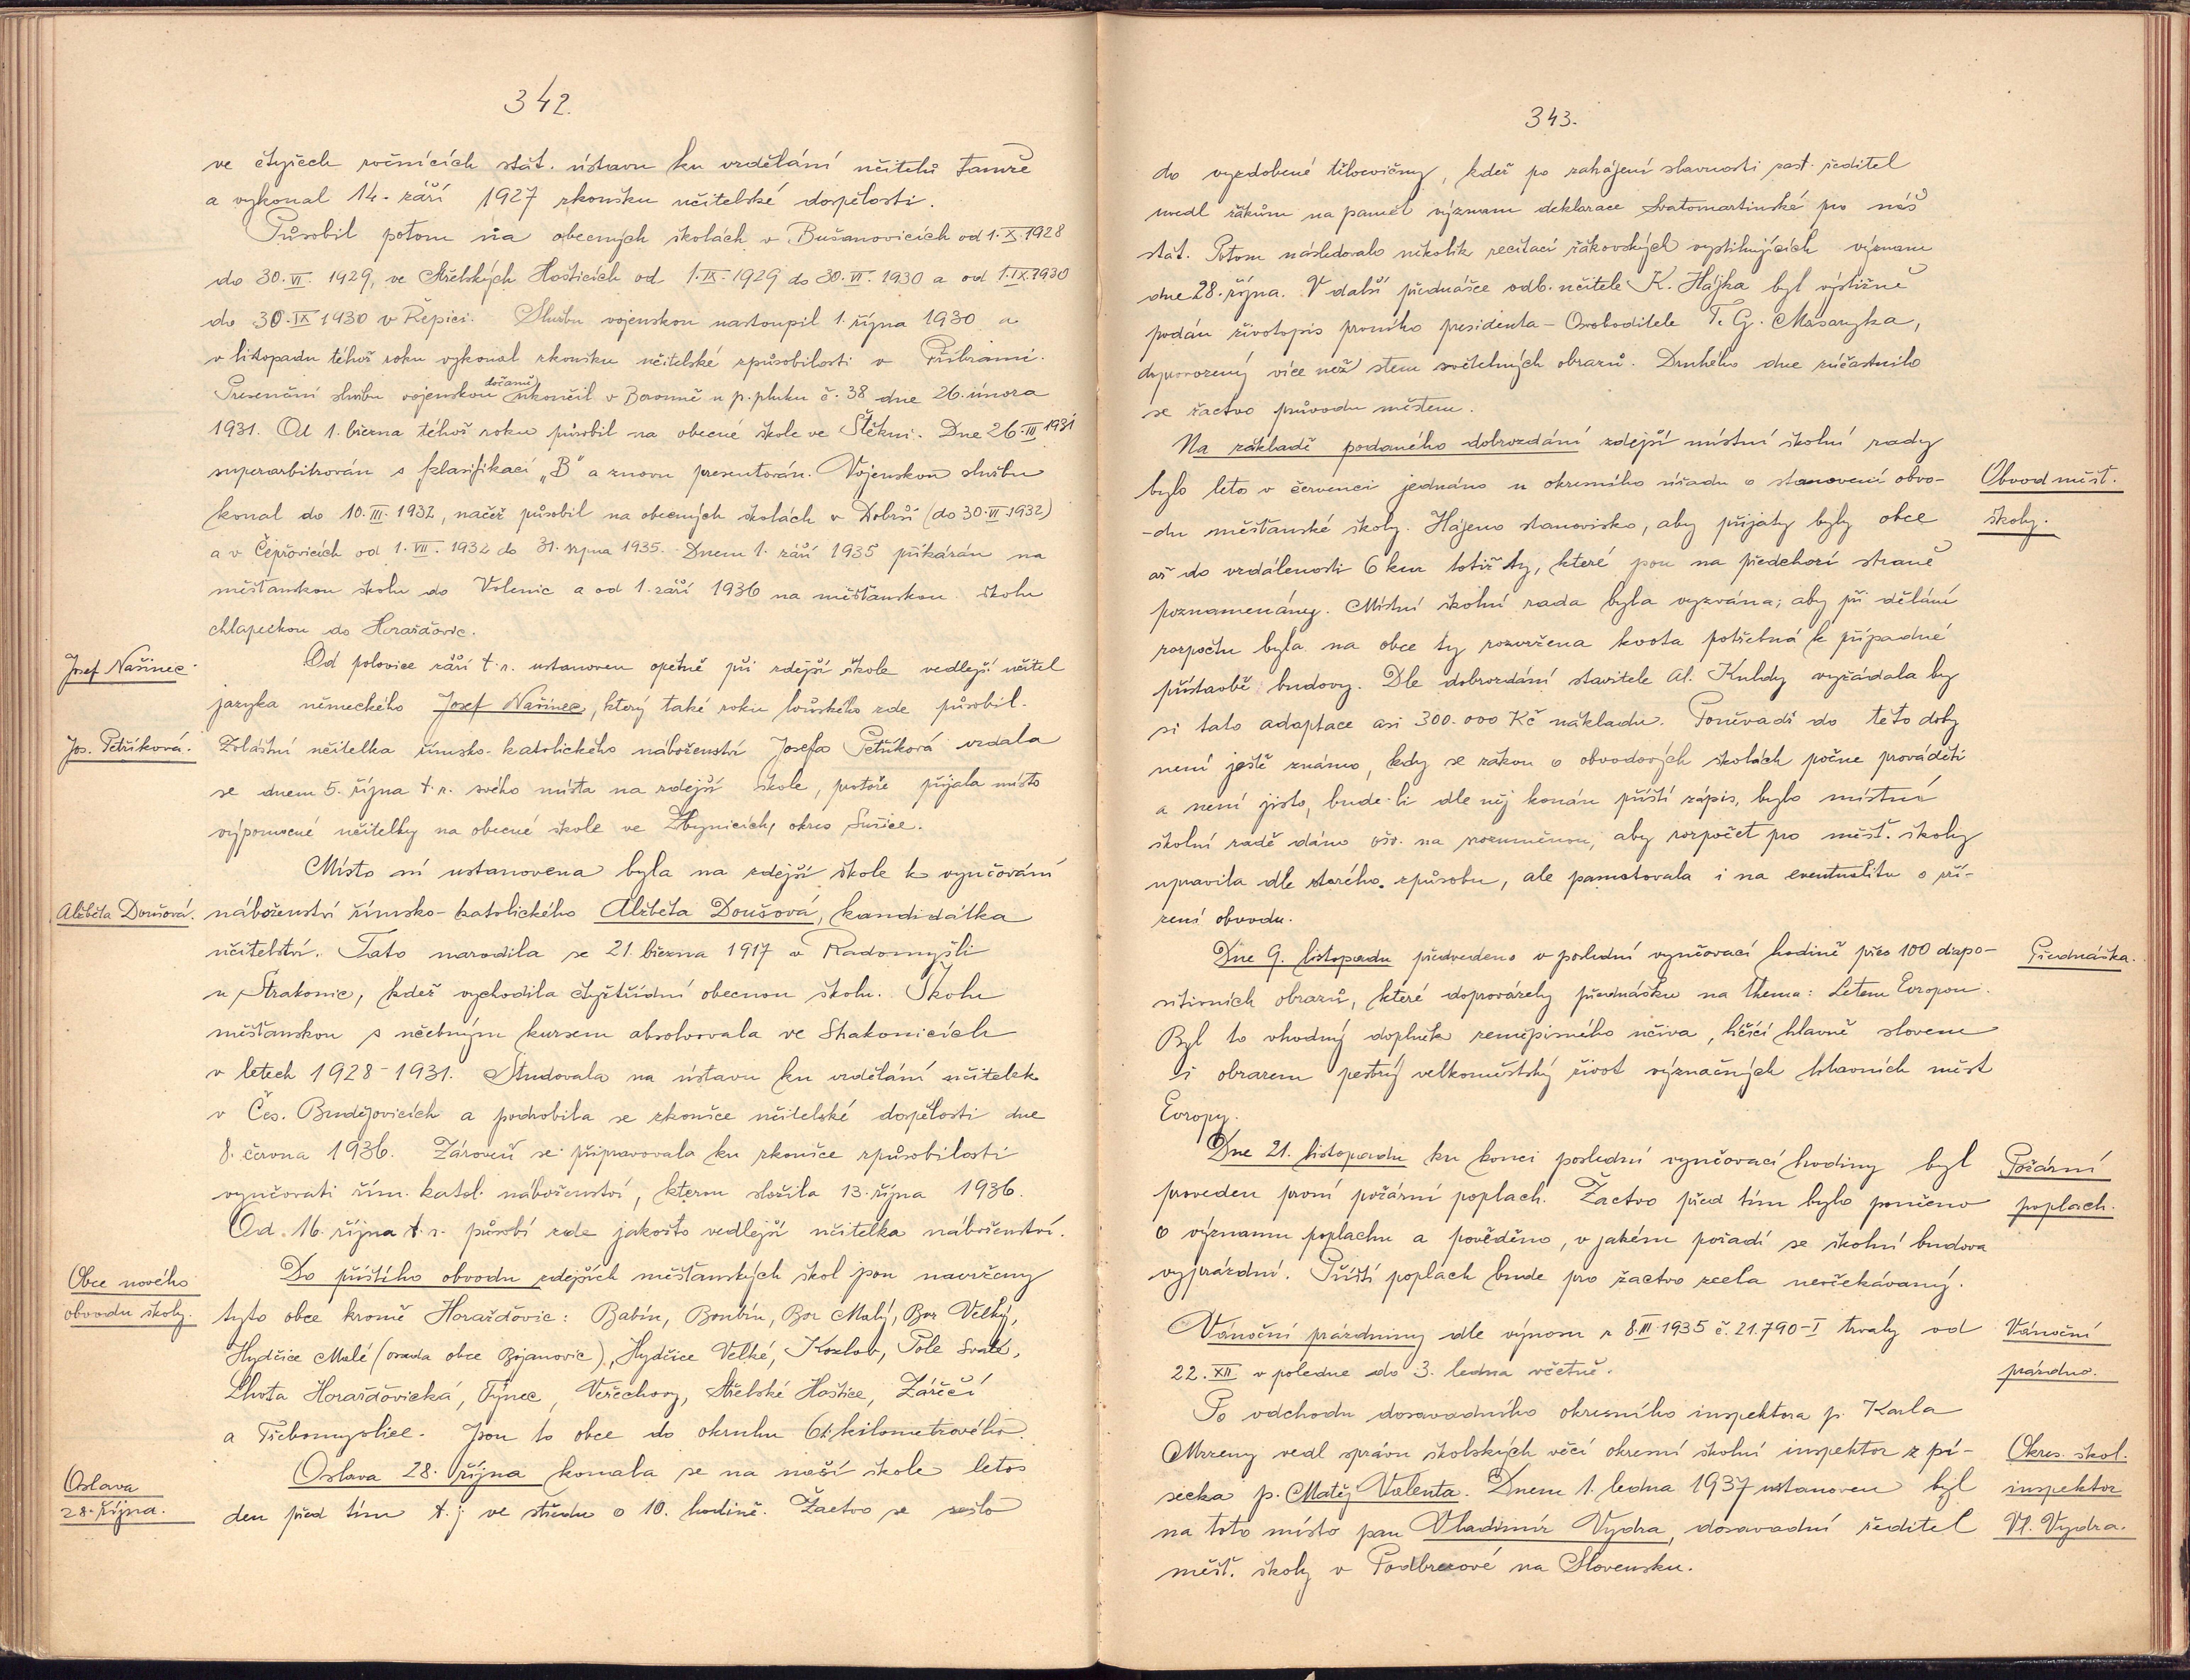 342.
ve čtyřech ročnících stát. ústavu ku vzdělání učitelů tamže
a vykonal 14. září 1927 zkoušku učitelské dospělosti.
Působil potom na obecných školách v Bušanovicích od 1.X.1928
do 30.VI.1929, ve Střelských Hošticích od 1.IX.1929 do 30.VI.1930 a od 1.IX.1930
do 30.IX 1930 v Řepici. Službu vojenskou nastoupil 1. října 1930 a
v listopadu téhož roku vykonal zkoušku učitelské způsobilosti v Příbrami.
Presenční službu vojenskou dočasně ukončil v Berouně u p. pluku č. 38 dne 26. února
1931. Od 1. března téhož roku působil na obecné škole ve Štěkni. Dne 26.III 1931
superarbitrován s klasifikací „B" a znovu presentován. Vojenskou službu
konal do 10.III.1932, načež působil na obecných školách v Dobrši (do 30.VI 1932)
a v Čepřovicích od 1.VII.1932 do 31. srpna 1935. Dnem 1. září 1935 přikázán na
měšťanskou školu do Volenic a od 1. září 1936 na měšťanskou školu
chlapeckou do Horažďovic.
Josef Našinec.
Od polovice září t.r. ustanoven opětně při zdejší škole vedlejší učitel
jazyka německého Josef Našinec, který také roku loňského zde působil.
Jos. Petříková.
Zvláštní učitelka římsko-katolického náboženství Josefa Petříková vzdala
se dnem 5. října t.r. svého místa na zdejší škole, protože přijala místo
výpomocné učitelky na obecné škole ve Zbynicích, okres Sušice.
Místo ní ustanovena byla na zdejší škole k vyučování
Alžběta Doušová.
náboženství římsko-katolického Alžběta Doušová, kandidátka
učitelství. Tato narodila se 21. března 1917 v Radomyšli
u Strakonic, kdež vychodila čtyřtřídní obecnou školu. Školu
měšťanskou s učebným kursem absolvovala ve Strakonicích
v letech 1928-1931. Studovala na ústavu ku vzdělání učitelek
v Čes. Budějovicích a podrobila se zkoušce učitelské dospělosti dne
8. června 1936. Zároveň se připravovala ku zkoušce způsobilosti
vyučovati řím. katol. náboženství, kterou složila 13. října 1936.
Od 16. října t.r. působí zde jakožto vedlejší učitelka náboženství.
Obce nového
obvodu školy.
Do příštího obvodu zdejších měšťanských škol jsou navrženy
tyto obce kromě Horažďovic: Babín, Boubín, Bor Malý, Bor Velký,
Hydčice Malé (osada obce Bojanovic), Hydčice Velké, Kozlov, Pole Svaté,
Lhota Horažďovická, Týnec, Veřechovy, Střelské Hoštice, Zářečí
a Třebomyslice. Jsou to obce do okruhu 6ti kilometrového.
Oslava
28. října.
Oslava 28. října konala se na naší škole letos
den před tím t.j. ve středu o 10. hodině. Žactvo se sešlo
343.
do vyzdobené tělocvičny, kdež po zahájení slavnosti zast. ředitel
uvedl žákům na paměť význam deklarace Svatomartinské pro náš
stát. Potom následovalo několik recitací žákovských vystihujících význam
dne 28. října. V další přednášce odb. učitele K. Hájka byl výstižně
podán životopis prvního presidenta-Osvoboditele T. G. Masaryka,
doprovozený více než stem světelných obrazů. Druhého dne zúčastnilo
se žactvo průvodu městem.
Na základě podaného dobrozdání zdejší místní školní rady
bylo leto v červenci jednáno u okresního úřadu o stanovení obvo-
Obvod měšť.
školy.
-du měšťanské školy. Hájeno stanovisko, aby přijaty byly obce
až do vzdálenosti 6 km totiž ty, které jsou na předchozí straně
poznamenány. Místní školní rada byla vyzvána, aby při dělání
rozpočtu byla na obce ty rozvržena kvota potřebná k případné
přístavbě budovy. Dle dobrozdání stavitele Al. Kuldy vyžádala by
si tato adaptace asi 300.000 Kč nákladu. Poněvadž do této doby
není ještě známo, kdy se zákon o obvodových školách počne prováděti
a není jisto, bude-li dle něj konán příští zápis, bylo místní
školní radě dáno oš. na srozuměnou, aby rozpočet pro měšť. školy
upravila dle starého způsobu, ale pamatovala i na eventualitu o zří-
zení obvodu.
Dne 9. listopadu předvedeno v poslední vyučovací hodině přes 100 diapo-
Přednáška.
sitivních obrazů, které doprovázely přednášku na thema: Letem Evropou.
Byl to vhodný doplněk zeměpisného učiva, líčící hlavně slovem
i obrazem pestrý velkoměstský život význačných hlavních měst
Evropy.
Dne 21. listopadu ku konci poslední vyučovací hodiny byl
Požární
poplach.
proveden první požární poplach. Žactvo před tím bylo poučeno
o významu poplachu a pověděno, v jakém pořadí se školní budova
vyprázdní. Příští poplach bude pro žactvo zcela neočekávaný.
Vánoční prázdniny dle výnosu z 8.III.1935 č. 21.790-I trvaly od
Vánoční
prázdno.
22.XII v poledne do 3. ledna včetně.
Po odchodu dosavadního okresního inspektora p. Karla
Mrzeny vedl správu školských věcí okresní školní inspektor z pí-
Okres. škol.
inspektor
Vl. Vydra.
secka p. Matěj Valenta. Dnem 1. ledna 1937 ustanoven byl
na toto místo pan Vladimír Vydra, dosavadní ředitel
měšť. školy v Podbrezové na Slovensku.